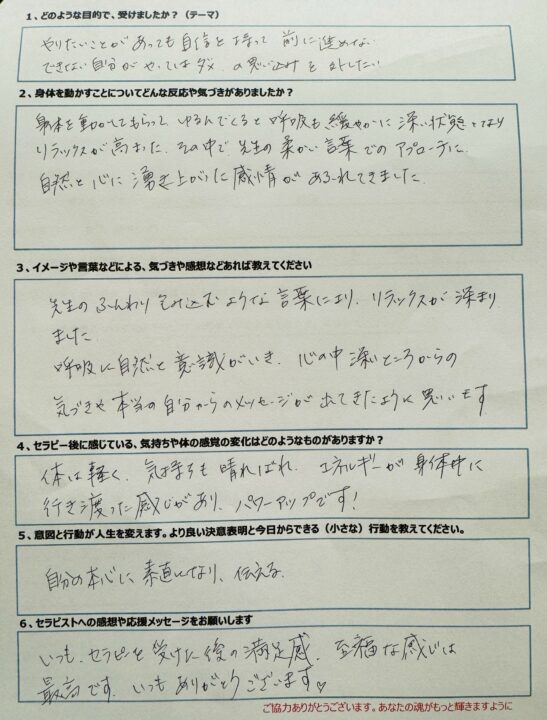 1、どのような目的で、受けましたか？（テーマ）
やりたいことがあっても自信を持って前に進めない
できない自分がやってはダメ の思い込みを外したい
2、身体を動かすことについてどんな反応や気づきがありましたか？
身体を動かしてもらって、ゆるんでくると呼吸も緩やかに深い状態となり
リラックスが高まった。その中で、先生の柔かい言葉でのアプローチに
自然と心に湧き上がった感情があふれてきました。
3、イメージや言葉などによる、気づきや感想などあれば教えてください
先生のふんわり包み込むような言葉により、リラックスが深まり
ました
呼吸に自然と意識がいき、心の中深いところからの
気づきや本当の自分からのメッセージが出てきたように思います
4、セラピー後に感じている、気持ちや体の感覚の変化はどのようなものがありますか？
体は軽く、気持ちも晴ればれ、エネルギーが身体中に
行き渡った感じがあり、パワーアップです！
5、意図と行動が人生を変えます。より良い決意表明と今日からできる（小さな）行動を教えてください。
自分の本心に素直になり、伝える。
6、セラピストへの感想や応援メッセージをお願いします
いつも、セラピーを受けた後の満足感、至福な感じは
最高です。いつもありがとうございます♡
ご協力ありがとうございます。あなたの魂がもっと輝きますように